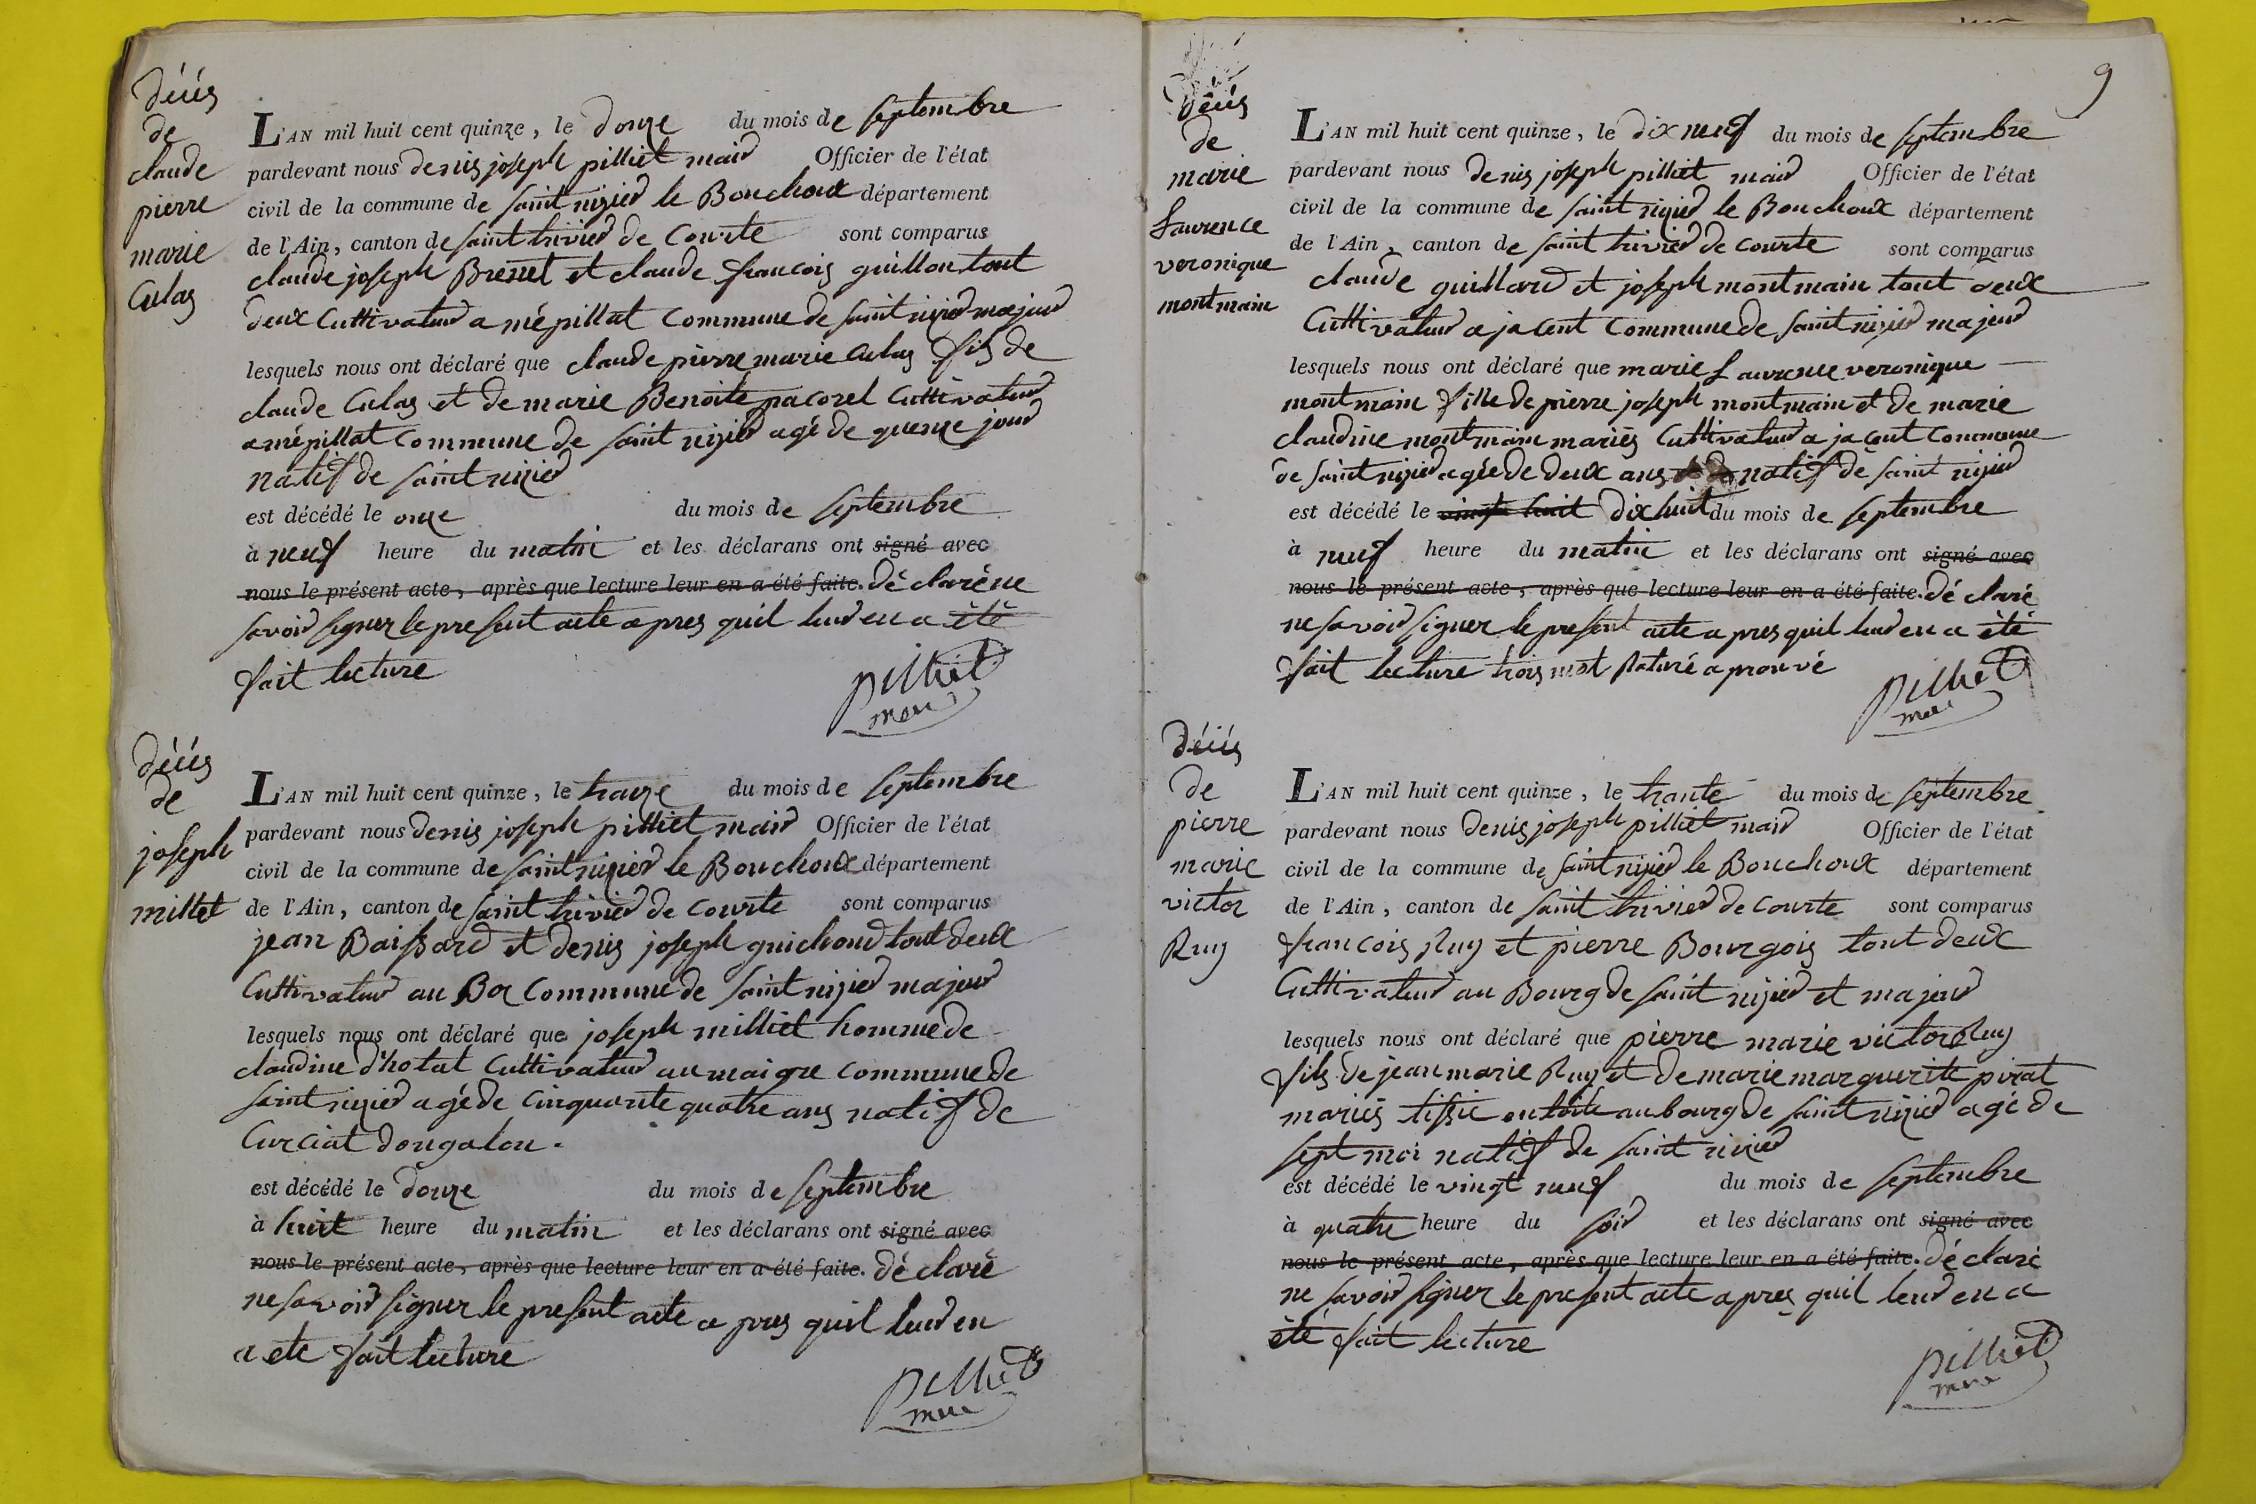 décès
de
claude
pierre
marie
Culas
L'AN mil huit cent quinze, le douze du mois de septembre
pardevant nous denis joseph pilliet maire Officier de l'état
civil de la commune de saint nizier le Bouchoux département
de l'Ain, canton de saint trivier de Courte sont comparus
claude joseph Brenet et claude francois guillon tout
deux Cultivateur a mépillat Commune de saint nizier majeur
lesquels nous ont déclaré que claude pierre marie Culas fils de
claude Culas et de marie Benoite pacorel Cultivateur
a mépillat Commune de saint nizier agé de quenze jour
natif de saint nizier
est décédé le onze du mois de septembre
à neuf heure du matin et les déclarans ont signé avec
nous le présent acte, après que lecture leur en a été faite. déclaré ne
savoir signer le present acte apres quil leur en a été
fait lecture
pilliet
maire
décès
de
joseph
milliet
L'AN mil huit cent quinze, le traize du mois de septembre
pardevant nous denis joseph pilliet maire Officier de l'état
civil de la commune de saint nizier le Bouchoux département
de l'Ain, canton de saint trivier de Courte sont comparus
jean Baissard et denis joseph guichond tout deux
Cultivateur au Boc Commune de saint nizier majeur
lesquels nous ont déclaré que joseph milliet homme de
claudine d'hotat Cultivateur au maigre Commune de
saint nizier agé de Cinquante quatre ans natif de
Curciat dongalon.
est décédé le douze du mois de septembre
à huit heure du matin et les déclarans ont signé avec
nous le présent acte, après que lecture leur en a été faite. déclaré
ne savoir signer le present acte a pres quil leur en
a ete fait lecture
pilliet
maire
9
décès
de
marie
Laurence
veronique
montmain
L'AN mil huit cent quinze, le dix neuf du mois de septembre
pardevant nous denis joseph pilliet maire Officier de l'état
civil de la commune de saint nizier le Bouchoux département
de l'Ain, canton de saint trivier de Courte sont comparus
claude guillard et joseph montmain tout deux
Cultivateur a jacent Commune de saint nizier majeur
lesquels nous ont déclaré que marie Laurence veronique
montmain fille de pierre joseph montmain et de marie
claudine montmain mariés Cultivateur a jacent Commune
de saint nizier agée de deux ans natif de saint nizier
est décédé le vingt huit dix huit du mois de septembre
à neuf heure du matin et les déclarans ont signé avec
nous le présent acte, après que lecture leur en a été faite. déclaré
ne savoir signer le present acte a pres quil leur en a été
fait lecture trois mot raturé a prouvé
pilliet
maire
décès
de
pierre
marie
victor
Ruy
L'AN mil huit cent quinze, le trante du mois de septembre
pardevant nous denis joseph pilliet maire Officier de l'état
civil de la commune de saint nizier le Bouchoux département
de l'Ain, canton de saint trivier de Courte sont comparus
francois Ruy et pierre Bourgois tout deux
Cultivateur au Bourg de saint nizier et majeur
lesquels nous ont déclaré que pierre marie victor Ruy
fils de jean marie Ruy et de marie marguerite pirat
mariés tissie en toile au bourg de saint nizier agé de
sept moi natif de saint nizier
est décédé le vingt neuf du mois de septembre
à quatre heure du soir et les déclarans ont signé avec
nous le présent acte, après que lecture leur en a été faite. déclaré
ne savoir signer le present acte apres quil leur en a
été fait lecture
pilliet
maire